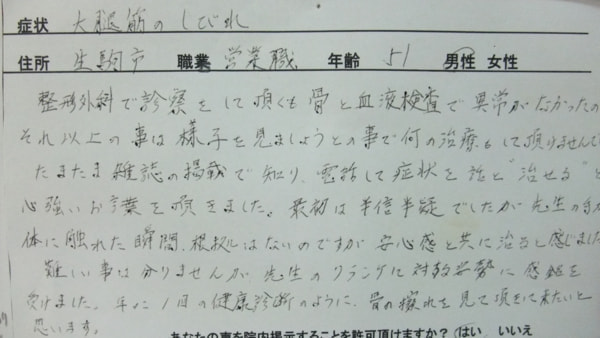 症状 大腿筋のしびれ
住所 生駒市 職業 営業職 年齢 51 男性 女性
整形外科で診察をして頂くも骨と血液検査で異常がなかったの
それ以上の事は様子を見ましょうとの事で何の治療もして頂けませんで
たまたま雑誌の掲載で知り、電話して症状を話と"治せる"と
心強いお言葉を頂きました。最初は半信半疑でしたが先生の手が
体に触れた瞬間、根拠はないのですが安心感と共に治ると感じまし
難しい事は分りませんが、先生のクランケに対する姿勢に感銘を
受けました。年に1回の健康診断のように、骨の歪れを見て頂きに来たいと
思います。
あなたの事を院内掲示することを許可頂けますか? はい いいえ